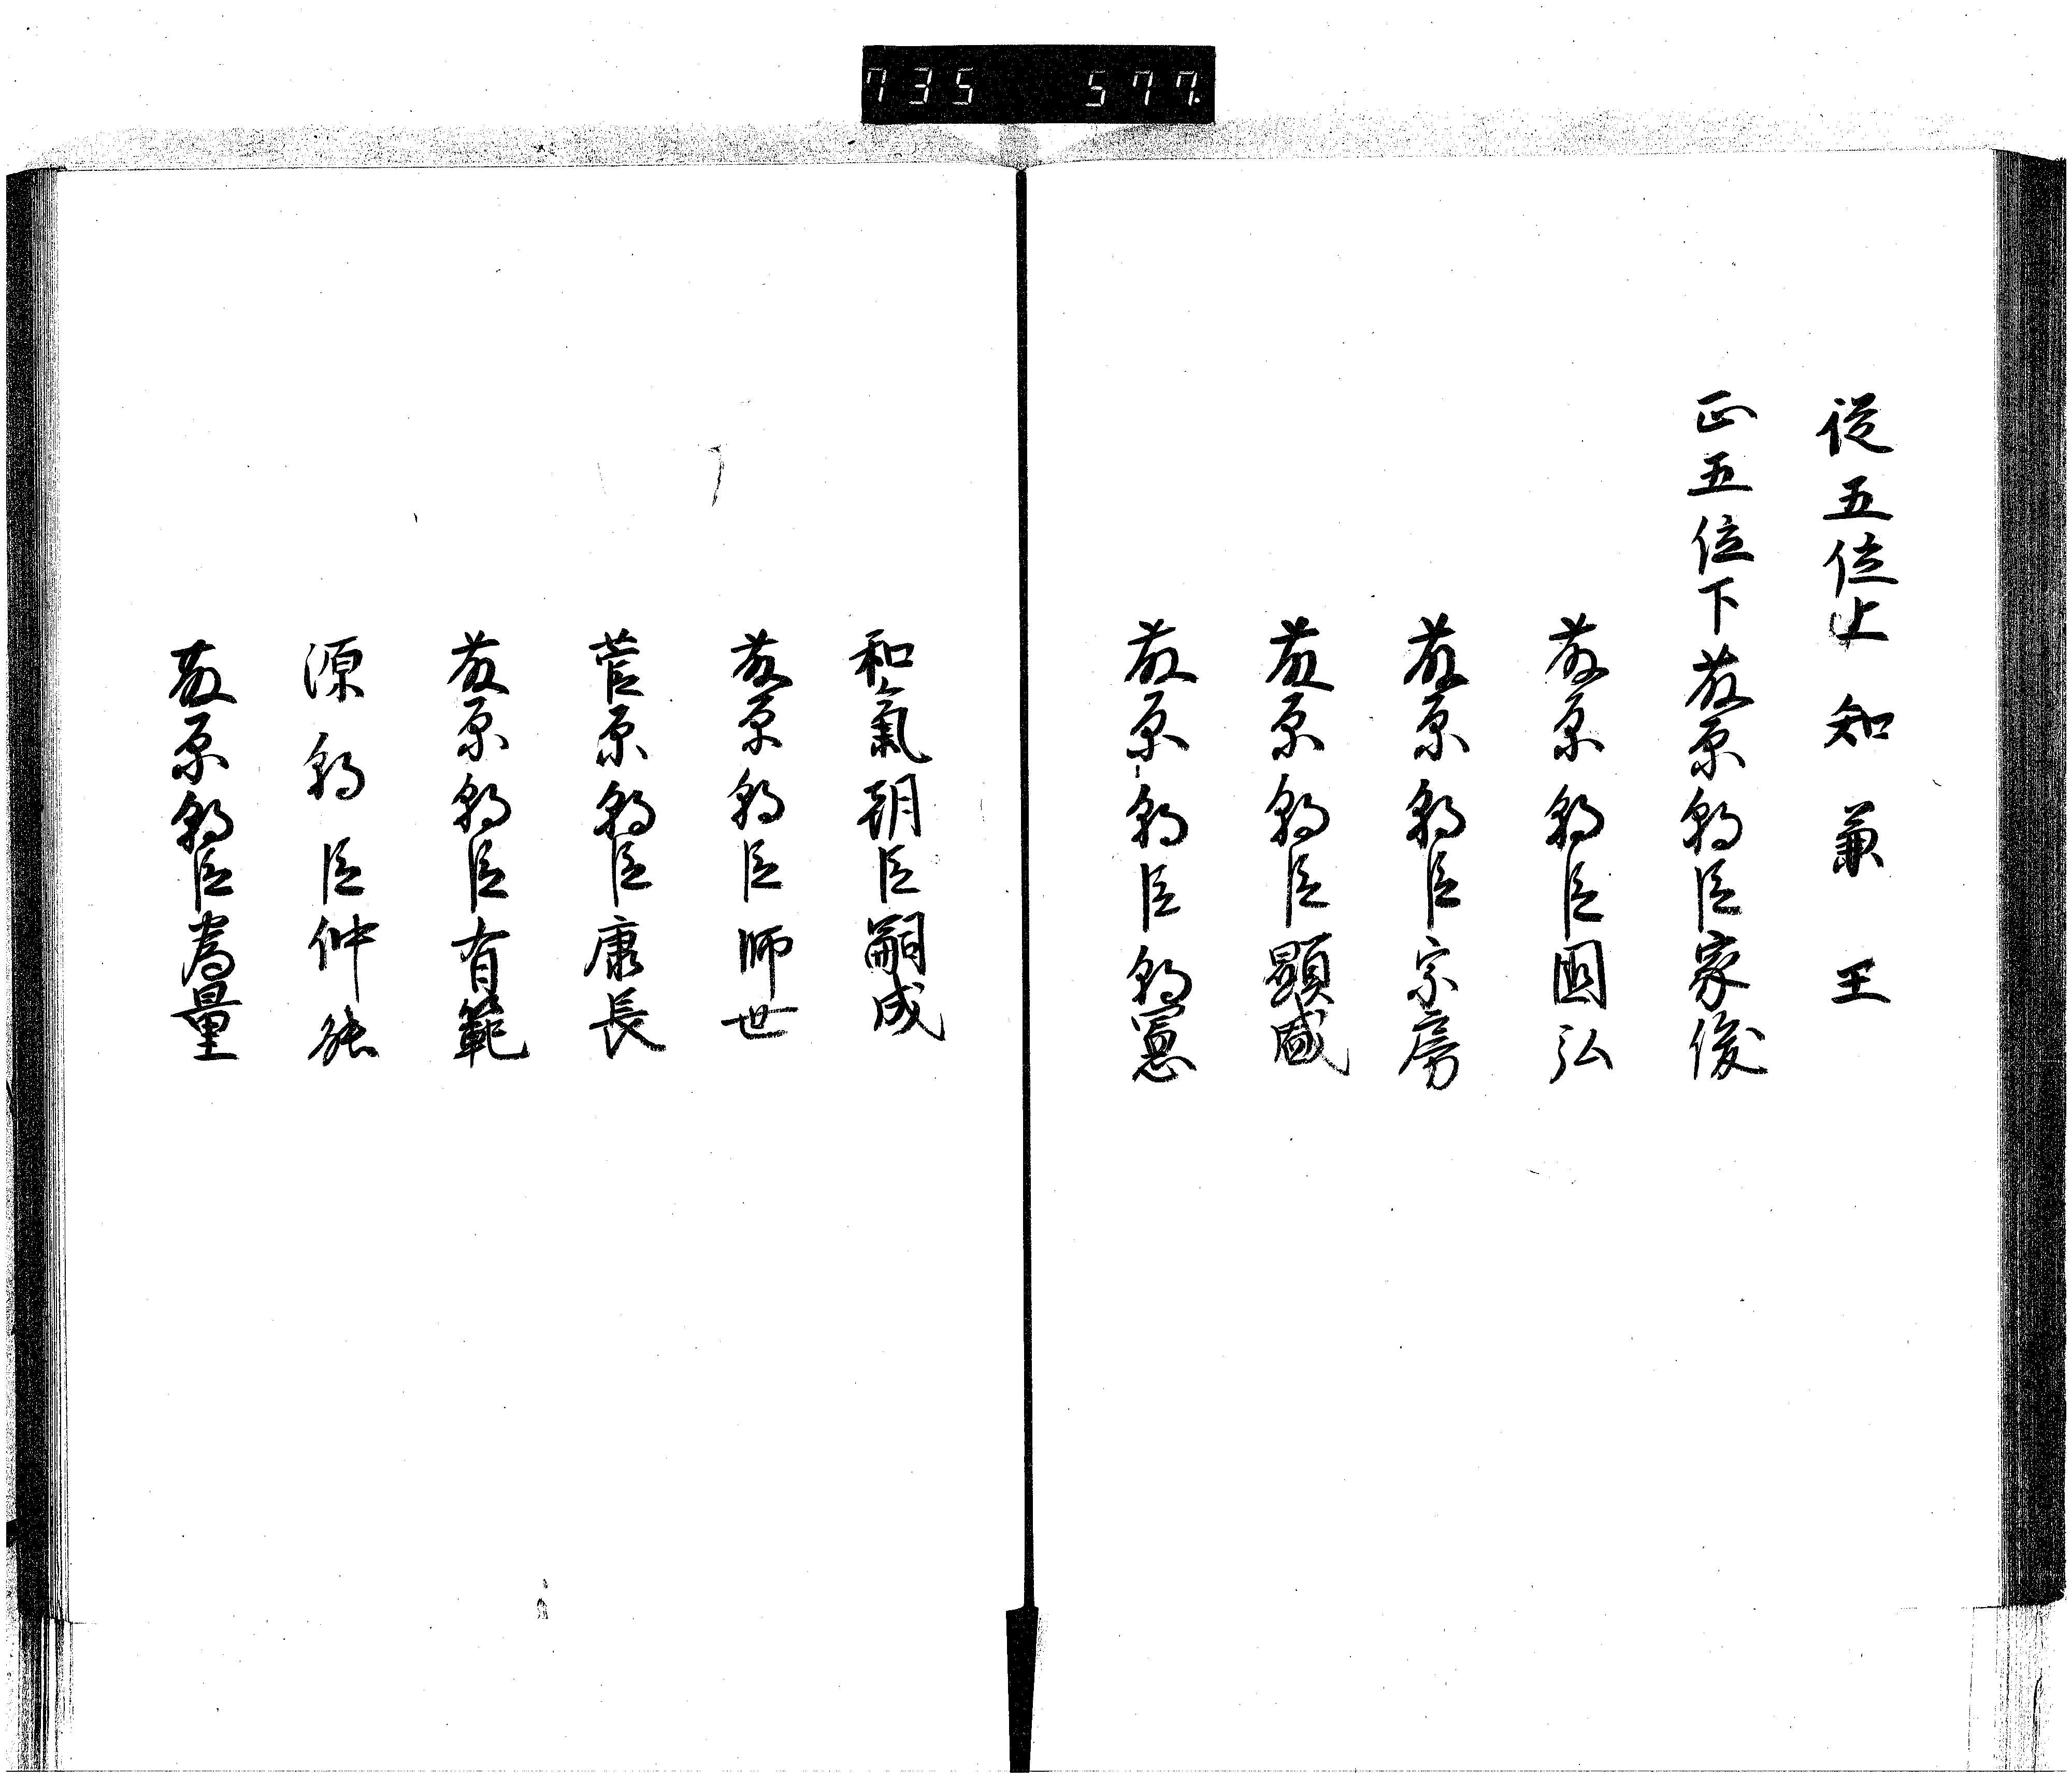 735 577.
従五位上知兼王
正五位下藤原朝臣家俊
藤原朝臣国弘
藤原朝臣宗房
藤原朝臣顕盛
藤原朝臣朝憲
和氣朝臣嗣成
藤原朝臣師世
菅原朝臣康長
藤原朝臣有範
源朝臣仲能
藤原朝臣為量